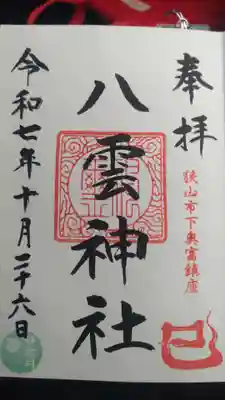 奉拝
狭山市下奥富鎮座
八雲神社
令和七年十月二十六日
巳